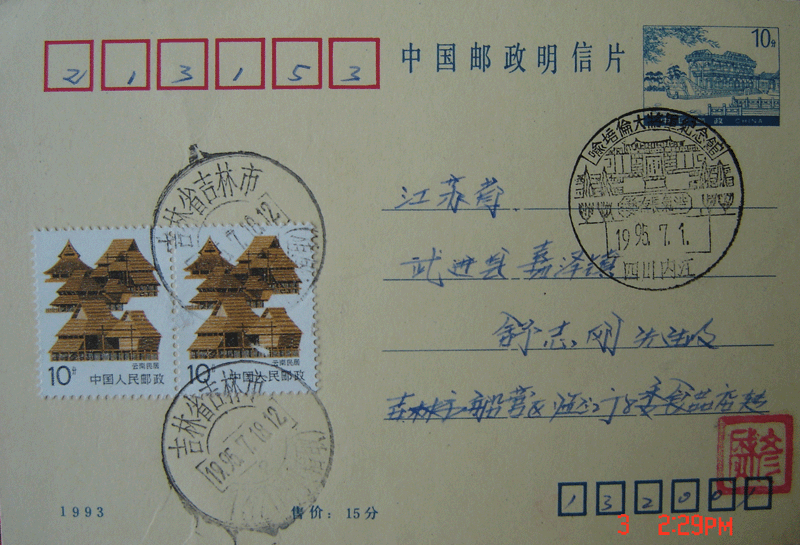 213153
中国邮政明信片
10分
中国邮政 CHINA
喻培倫大將軍紀念館
1995.7.1.
四川内江
江苏省
武进县嘉泽镇
舒志刚先生收
吉林省吉林市
7.18.12
10分
云南民居
中国人民邮政
10分
云南民居
中国人民邮政
吉林省吉林市
1995.7.18.12
吉林市船营区
委食品店赵
132001
1993
售价：15分
3 2:29PM